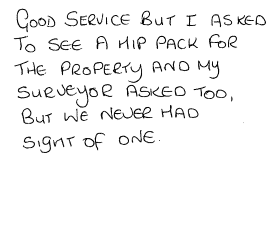 GOOD SERVICE BUT I ASKED
TO SEE A HIP PACK FOR
THE PROPERTY AND MY
SURVEYOR ASKED TOO,
BUT WE NEVER HAD
SIGHT OF ONE.